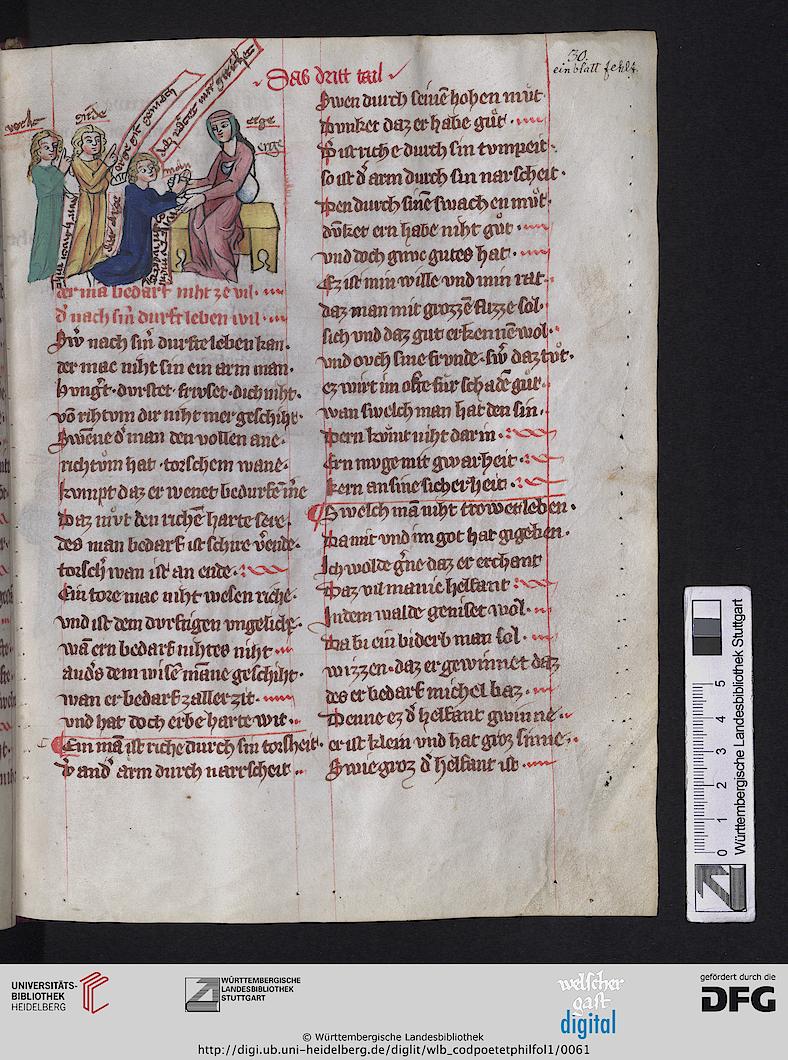 Daz dritt tail
30.
ein blatt fehlt
erge
man
der mā bedarf niht ze vil
d̕ nach sīm durft leben wil
Sw̄ nach sīn durfte leben kan·
der mac niht sin ein arm man·
hvngt̕· dvrstet· frivset· dich niht·
vō rihtvm dir niht mer geschiht·
Swēne d̕ man den vollen ane·
richtům hat· torschem wane·
kvmpt daz er wenet bedurfe me
Daz mv̊t den richē harte sere·
des man bedarf ist schire v̕ende·
torsch̕ wan ist an ende·
Ein tore mac niht wesen riche·
vnd ist dem dvrftigen vngeliche·
wā ern bedarf nihtes niht
and̕s dem wisē māne geschiht·
wan er bedarf zaller zit·
vnd hat doch erbe harte wit·
Ein mā ist riche durch sin torsheit·
d̕ and̕ arm durch narrscheit
Swen durch seinē hohen mv̊t
Dvnket daz er habe gůt
D̕ ist riche durch sin tvmpeit·
so ist d̕ arm durch sin narscheit·
Den durch sinē swachen mv̊t·
dv̊nket ern habe niht gůt
vnd doch gnvc gutes hat·
Ez ist min wille vnd min rat·
daz man mit grozzē flizze sol·
sich vnd daz gut erkennē wol·
vnd ovch sine frvnde· sw̄ daz tůt·
ez wirt im ofte für schadē gůt·
wan swelch man hat den sin·
Dern kv̊mt niht dar in
Ern mvge mit gwarheit
kern an sine sicherheit·
Swelch mā niht trowet leben·
Da mit vnd im got hat gigeben·
Ich wolde g̕ne daz er erchant
Daz vil manic helfant
In dem walde geniset wol·
Da bi ein biderb man sol·
wizzen· daz er gewinnet daz
des er bedarf michel baz
Denne ez d̕ helfant gwinne
er ist klein vnd hat groz sinne
Swie groz d̕ helfant ist
0 1 2 3 4 5
Württembergische Landesbibliothek Stuttgart
UNIVERSITÄTS-
BIBLIOTHEK
HEIDELBERG
WÜRTTEMBERGISCHE
LANDESBIBLIOTHEK
STUTTGART
welscher
gast
digital
gefördert durch die
DFG
© Württembergische Landesbibliothek
http://digi.ub.uni-heidelberg.de/diglit/wlb_codpoetetphilfol1/0061